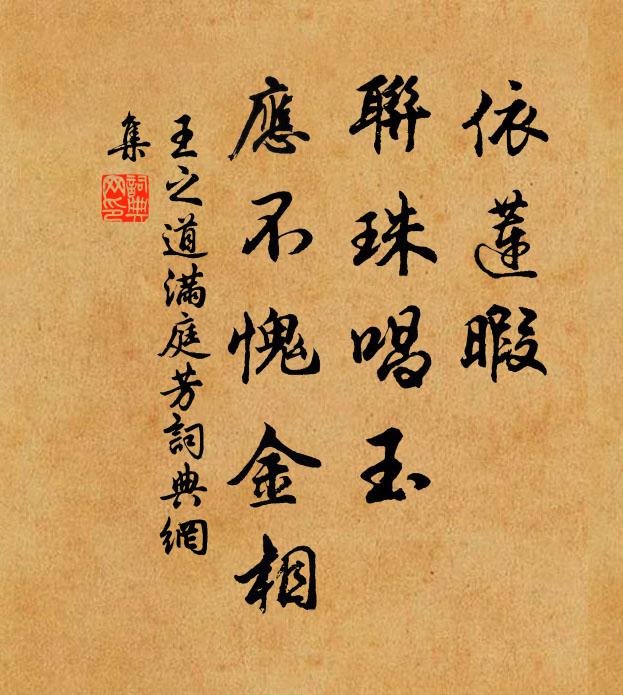 依蓮暇
聯珠唱玉
應不愧金相
王之道滿庭芳詞典網
集
詞典網印